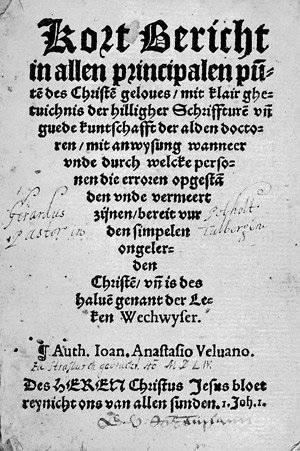 Kort Bericht
in allen principalen pũ-
tẽ des Christẽ geloues / mit klair ghe-
tuichnis der hilligher Schriffturẽ vñ
guede kuntschafft der alden docto-
ren / mit anwysung wanneer
vnde durch welcke perso-
nen die erroren opgestã
den vnde vermeert
zijnen / bereit vur
den simpelen
ongeler-
den
Christẽ / vñ is des
haluẽ genant der Le-
ken Wechwyser.
Gerardus
Pastor in
Auth. Ioan. Anastasio Veluano.
Des HEREN Christus Jesus bloet
reynicht ons van allen sunden. 1. Joh. 1.